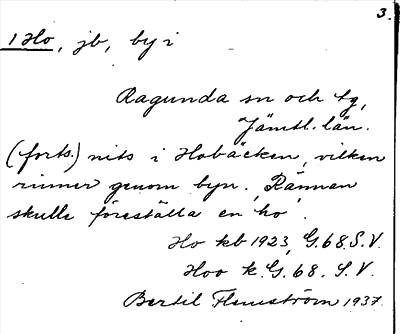 3.
1 Ho, jb, by i
Ragunda sn och tg,
Jämtl. län.
(forts.) nits i Hobäcken, vilken
rinner genom byn. 'Rännan
skulle föreställa en ho'.
Ho kb 1923, G.68.S.V.
Hoo k.G. 68. S.V.
Bertil Flemström 1937.